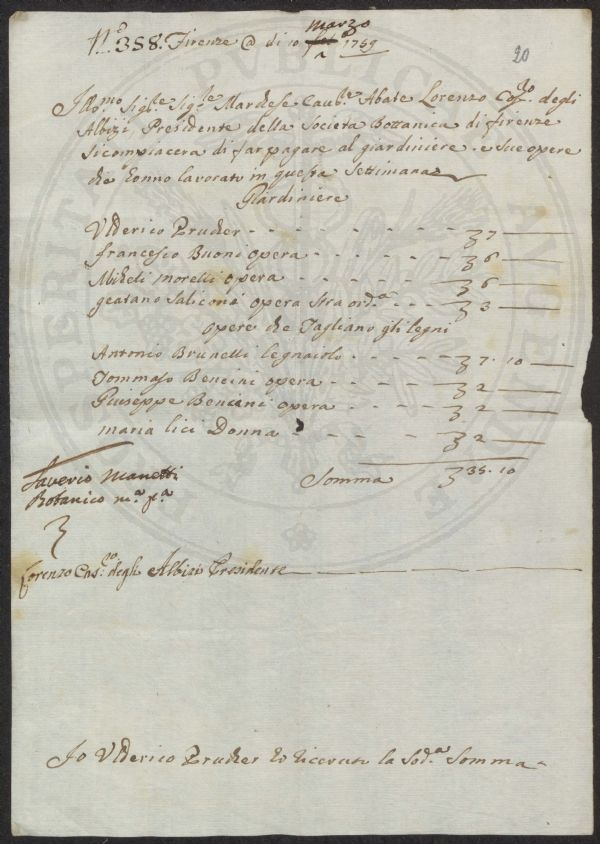 N.o 358. Firenze @ di 10 Marzo 1759
20
Ill.mo Sig.re Sig.re Mardese Caval.re Abate Lorenzo Cas.o degli
Albizi, Presidente della Società Bottanica di firenze
Si compiacera di far pagare al giardiniere. e Sue opere
che onno lavorato in questa Settimana
Giardiniere
Ulderico Prucker - - - - - - - 7
francesco Buoni opera - - - - - 6
Mikeli Morelli opera - - - - - 6
geatano Saliconi opera Straord.a - - - 3
opere che Tagliano gli legni
Antonio Brunelli legnaiolo - - - - 7. 10
Tommaso Bencini opera - - - - 2
Giuseppe Bencini opera - - - - 2
maria lici Donna - - - - 2
Somma 35. 10
Saverio Manetti
Botanico m.o p.a
Lorenzo Cas.co degli Albizi Presidente
Io Ulderico Prucker ho riceruto la Sod.a Somma
PUBLICAE